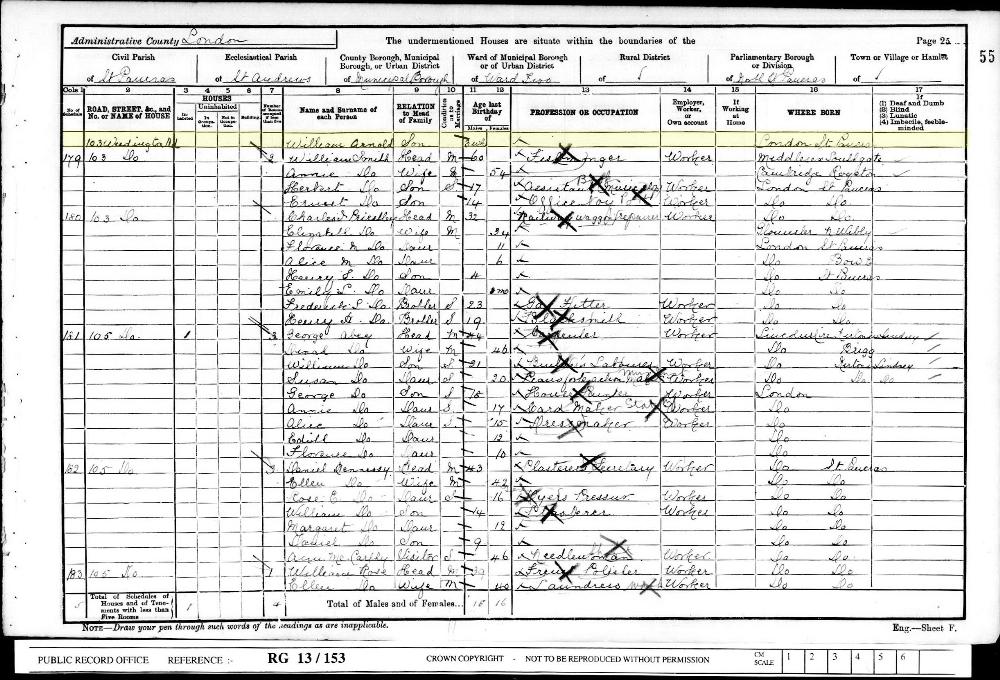 Administrative County London The undermentioned Houses are situate within the boundaries of the Page 25
55
Civil Parish Ecclesiastical Parish County Borough, Municipal Borough, or Urban District Ward of Municipal Borough or of Urban District Rural District Parliamentary Borough or Division Town or Village or Hamlet
of St Pancras of St Andrews of Municipal Borough of Ward Two of of North St Pancras of
Cols 1 2 3 4 5 6 7 8 9 10 11 12 13 14 15 16 17
No. of Schedule ROAD, STREET, &c., and No. or NAME of HOUSE HOUSES Inhabited Uninhabited In Occupation Not in Occupation Building Number of Rooms occupied if less than five Name and Surname of each Person RELATION to Head of Family Condition as to Marriage Age last Birthday of Males Females PROFESSION OR OCCUPATION Employer, Worker, or Own account If Working at Home WHERE BORN If (1) Deaf and Dumb (2) Blind (3) Lunatic (4) Imbecile, feeble-minded
103 William Arnold Son London St Pancras
179 103 Do 2 William Smith Head M 60 Worker Middlesex Southgate
Annie Do Wife M 54 Royston
Herbert Do Son S 17 Assistant Worker London St Pancras
Ernest Do Son 14 Office Boy Worker Do Do
180 103 Do Charles Priestley Head M 32 Railway Waggon Repairer Worker Do Do
Elizabeth Do Wife M 24
Florence M Do Daur 11 London St Pancras
Alice M Do Daur 6 Do Bow
Henry Do Son 4 Do St Pancras
Emily Do Daur Do Do
Frederick Do Brother S 23 Gas Fitter Worker Do Do
Henry Do Brother S 19 Blacksmith Worker Do Do
181 105 Do 1 George Head M Carpenter Worker Lindsey
Do Wife M 46 Do Brigg
William Do Son S 21 Labourer Worker Do Lindsey
Susan Do Daur S 20 Worker Do Do Do
George Do Son S 18 House Painter Worker London
Annie Do Daur S 17 Card Maker Worker Do
Alice Do Daur S 15 Dressmaker Worker Do
Edith Do Daur 12 Do
Florence Do Daur 10 Do
182 105 Do 3 Daniel Hennessy Head M 43 Plasterers Secretary Worker Do St Pancras
Ellen Do Wife M 42 Do Do
Rose E Do Daur S 16 Worker Do Do
William Do Son 14 Plasterer Worker Do Do
Margaret Do Daur 12 Do Do
Daniel Do Son 9 Do Do
McCarthy Visitor S 46 Needlewoman Worker Do Do
183 105 Do 1 William Rose Head M 39 French Polisher Worker Do Do
Ellen Do Wife M 40 Laundress Worker Do Do
5 Total of Schedules of Houses and of Tenements with less than Five Rooms 1 4 Total of Males and of Females... 15 16
NOTE—Draw your pen through such words of the headings as are inapplicable. Eng.—Sheet F.
PUBLIC RECORD OFFICE REFERENCE :- RG 13 / 153 CROWN COPYRIGHT - NOT TO BE REPRODUCED WITHOUT PERMISSION CM SCALE 1 2 3 4 5 6